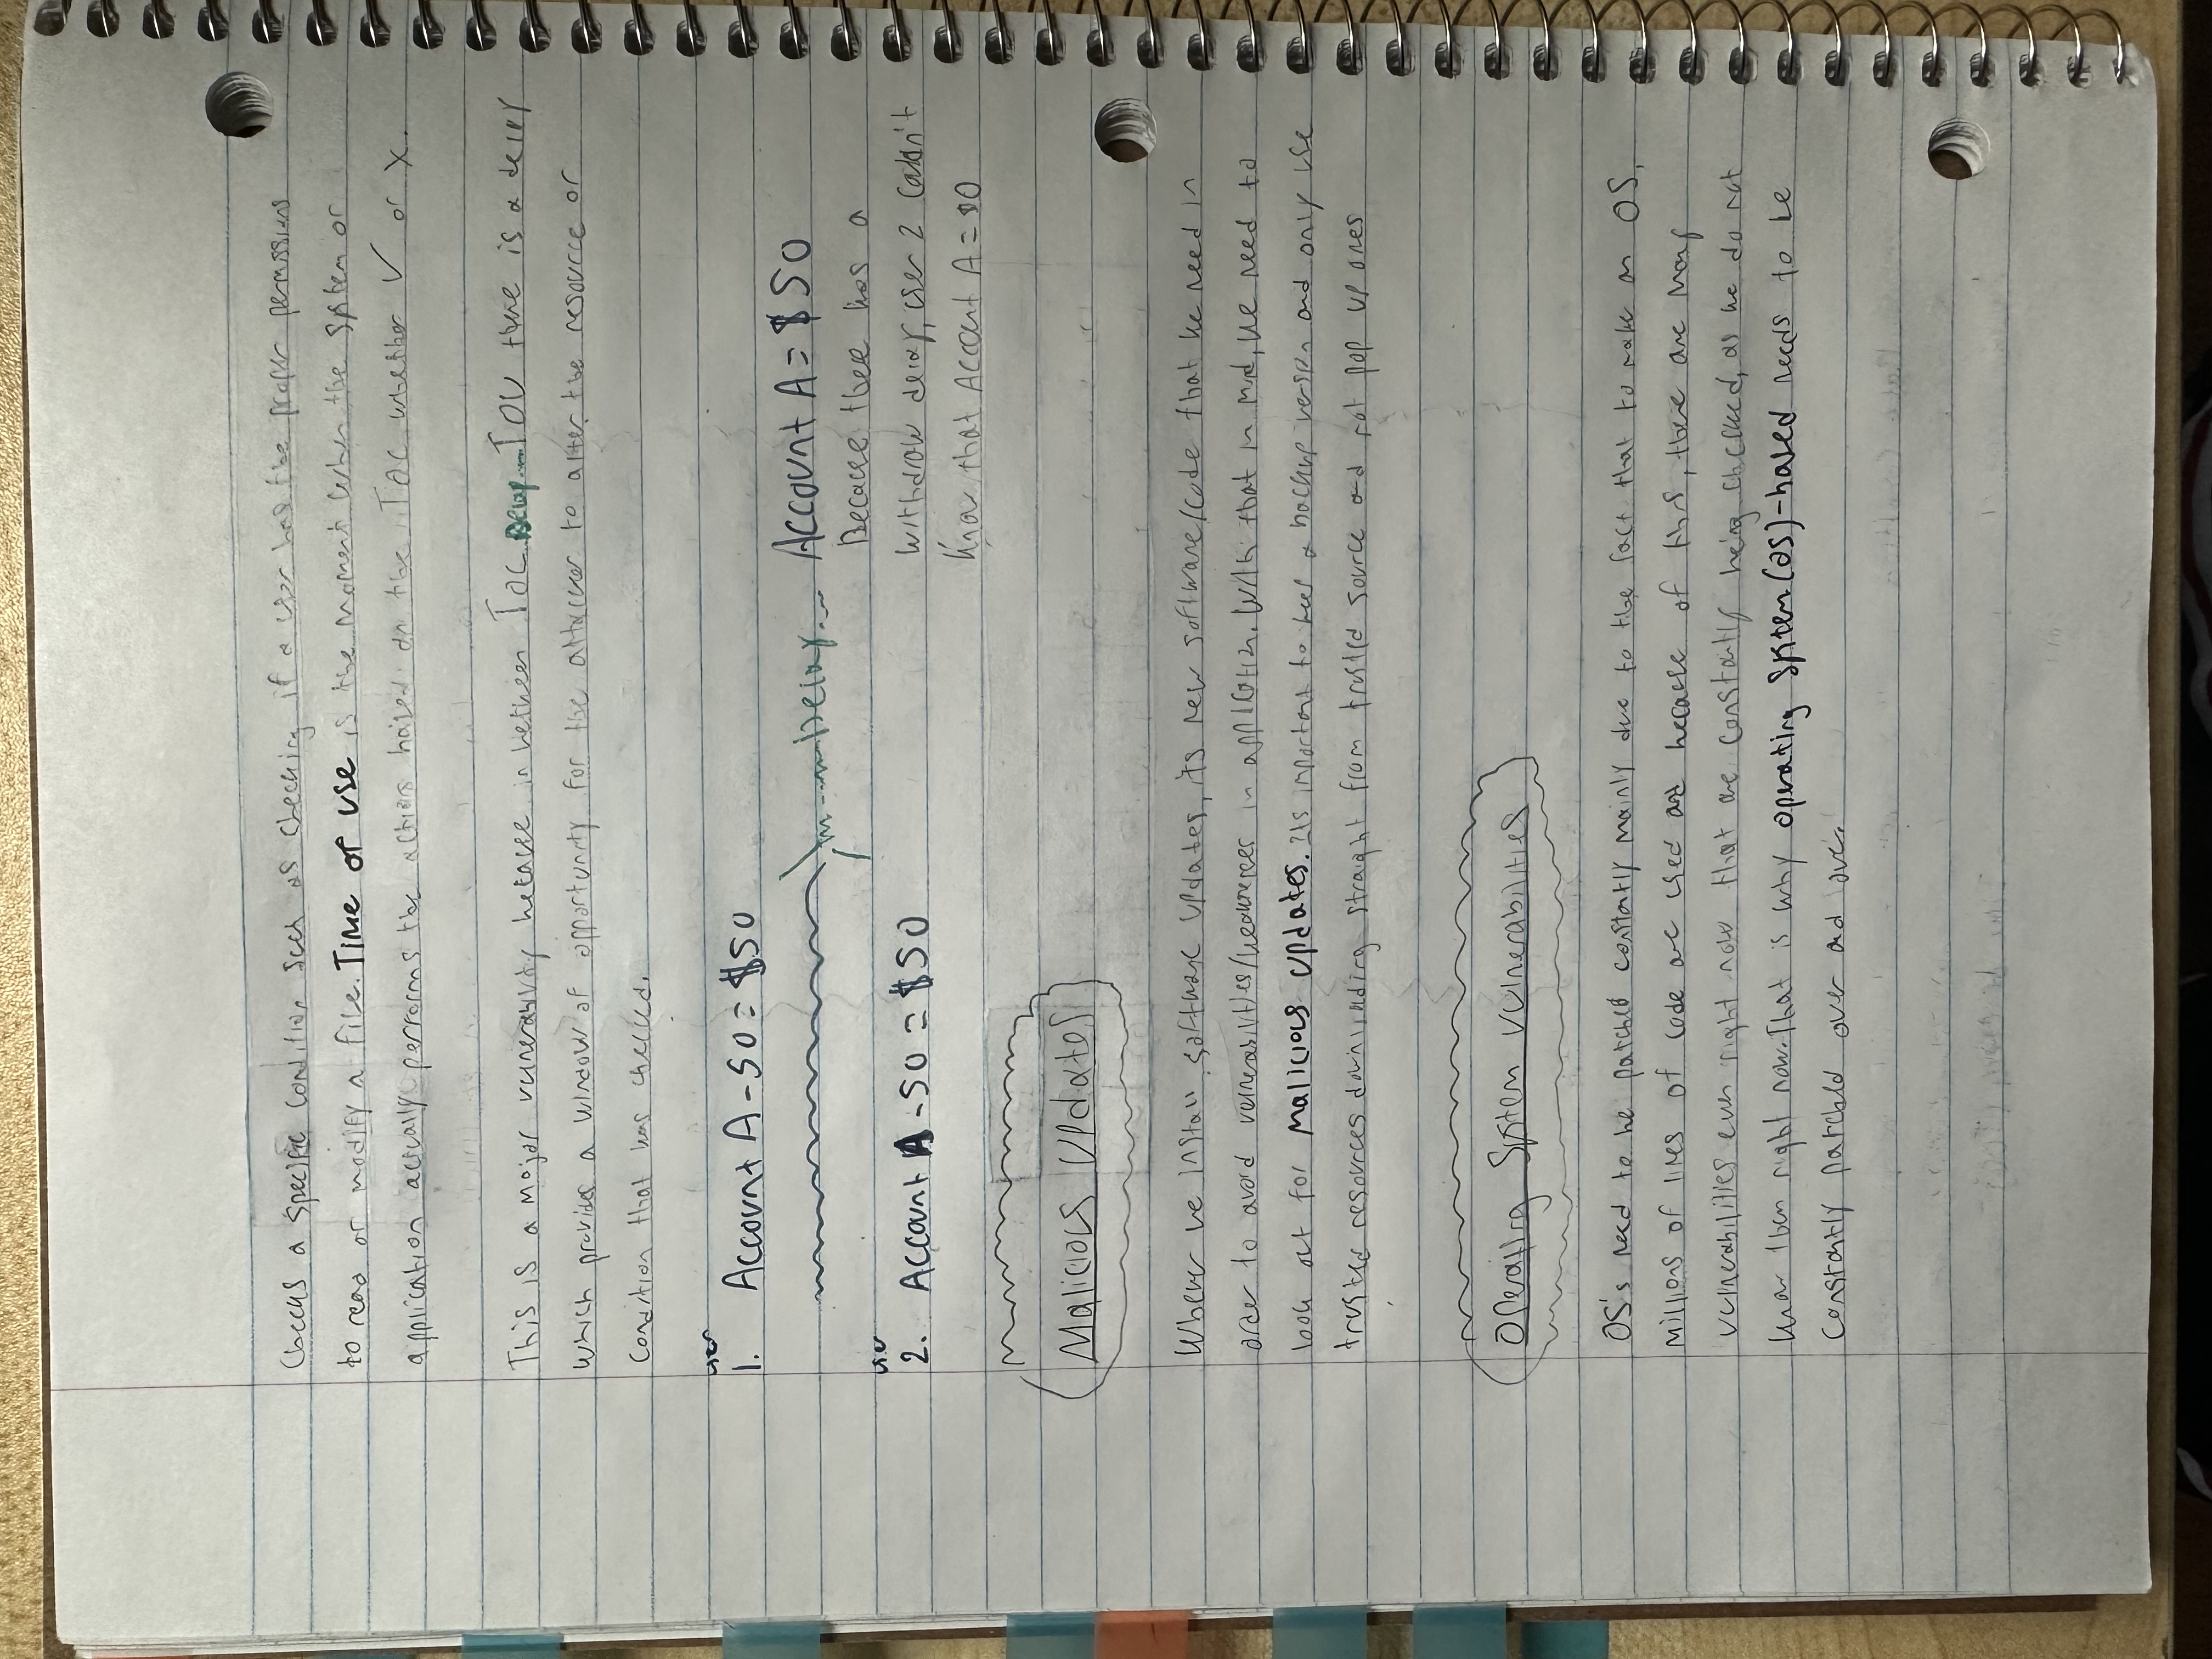 Checks a specific condition such as checking if a user has the proper permissions
to read or modify a file. Time of use is the moment when the system or
application actually performs the actions based on the TOC whether ✓ or X.
This is a major vulnerability because in between TOC Delay TOU there is a delay
which provides a window of opportunity for the attacker to alter the resource or
condition that was checked.
user
1. Account A - 50 = $50
Delay
Account A = $50
Because there was a
withdraw delay, user 2 couldn't
know that Account A = $0
user
2. Account A - 50 = $50
Malicious Updates
Whenever we install software updates, its new software/code that we need in
order to avoid vulnerabilities/weaknesses in application. With that in mind, we need to
look out for malicious updates. Its important to keep a backup version and only use
trusted resources downloading straight from trusted source and not pop up ones
Operating System Vulnerabilities
OS's need to be patched constantly mainly due to the fact that to make an OS,
millions of lines of code are used and because of this, there are many
vulnerabilities even right now that are constantly being checked, as we do not
know them right now. That is why operating system (OS)-based needs to be
constantly patched over and over.